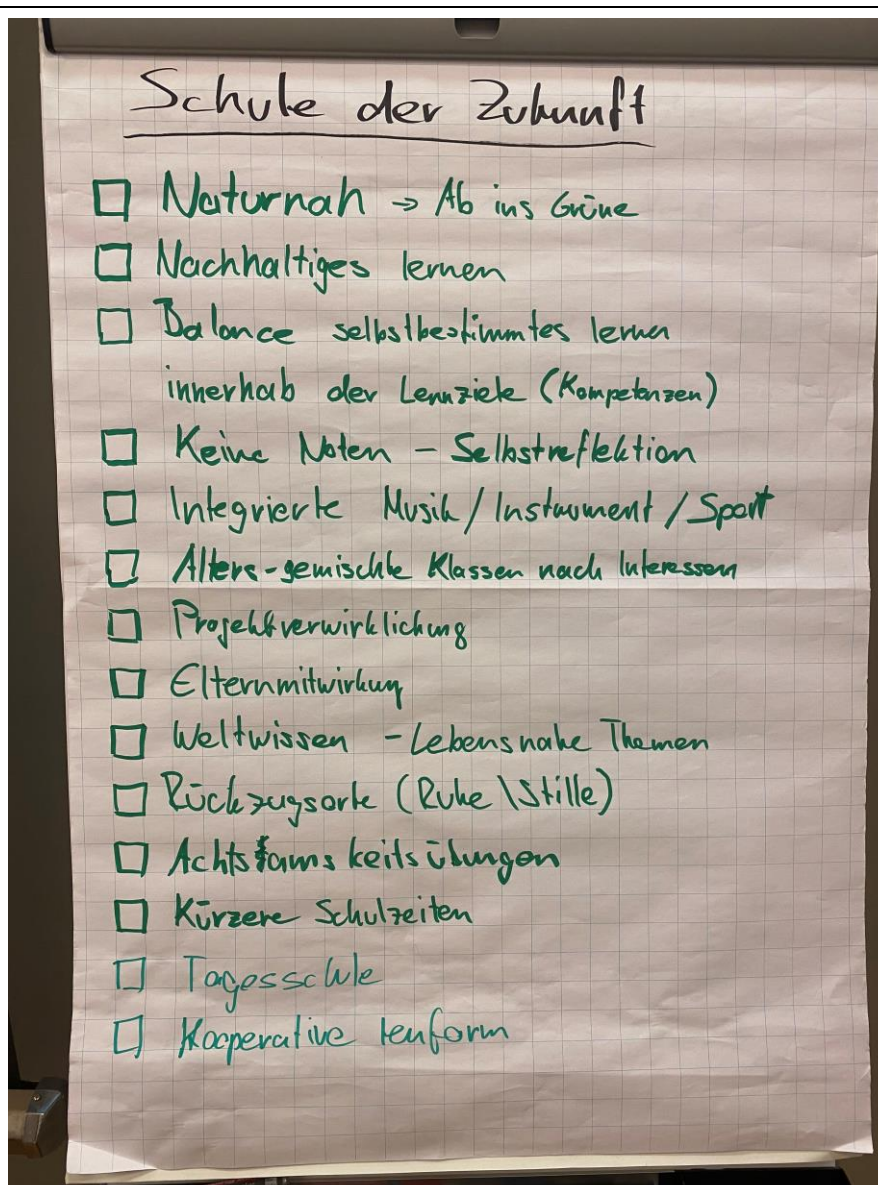 Schule der Zukunft
Naturnah → Ab ins Grüne
Nachhaltiges lernen
Balance selbstbestimmtes lernen
innerhab der Lernziele (Kompetenzen)
Keine Noten – Selbstreflektion
Integrierte Musik / Instrument / Sport
Alters-gemischte Klassen nach Interessen
Projektverwirklichung
Elternmitwirkung
Weltwissen – Lebensnahe Themen
Rückzugsorte (Ruhe \ Stille)
Achtsamskeitsübungen
Kürzere Schulzeiten
Tagesschule
Kooperative